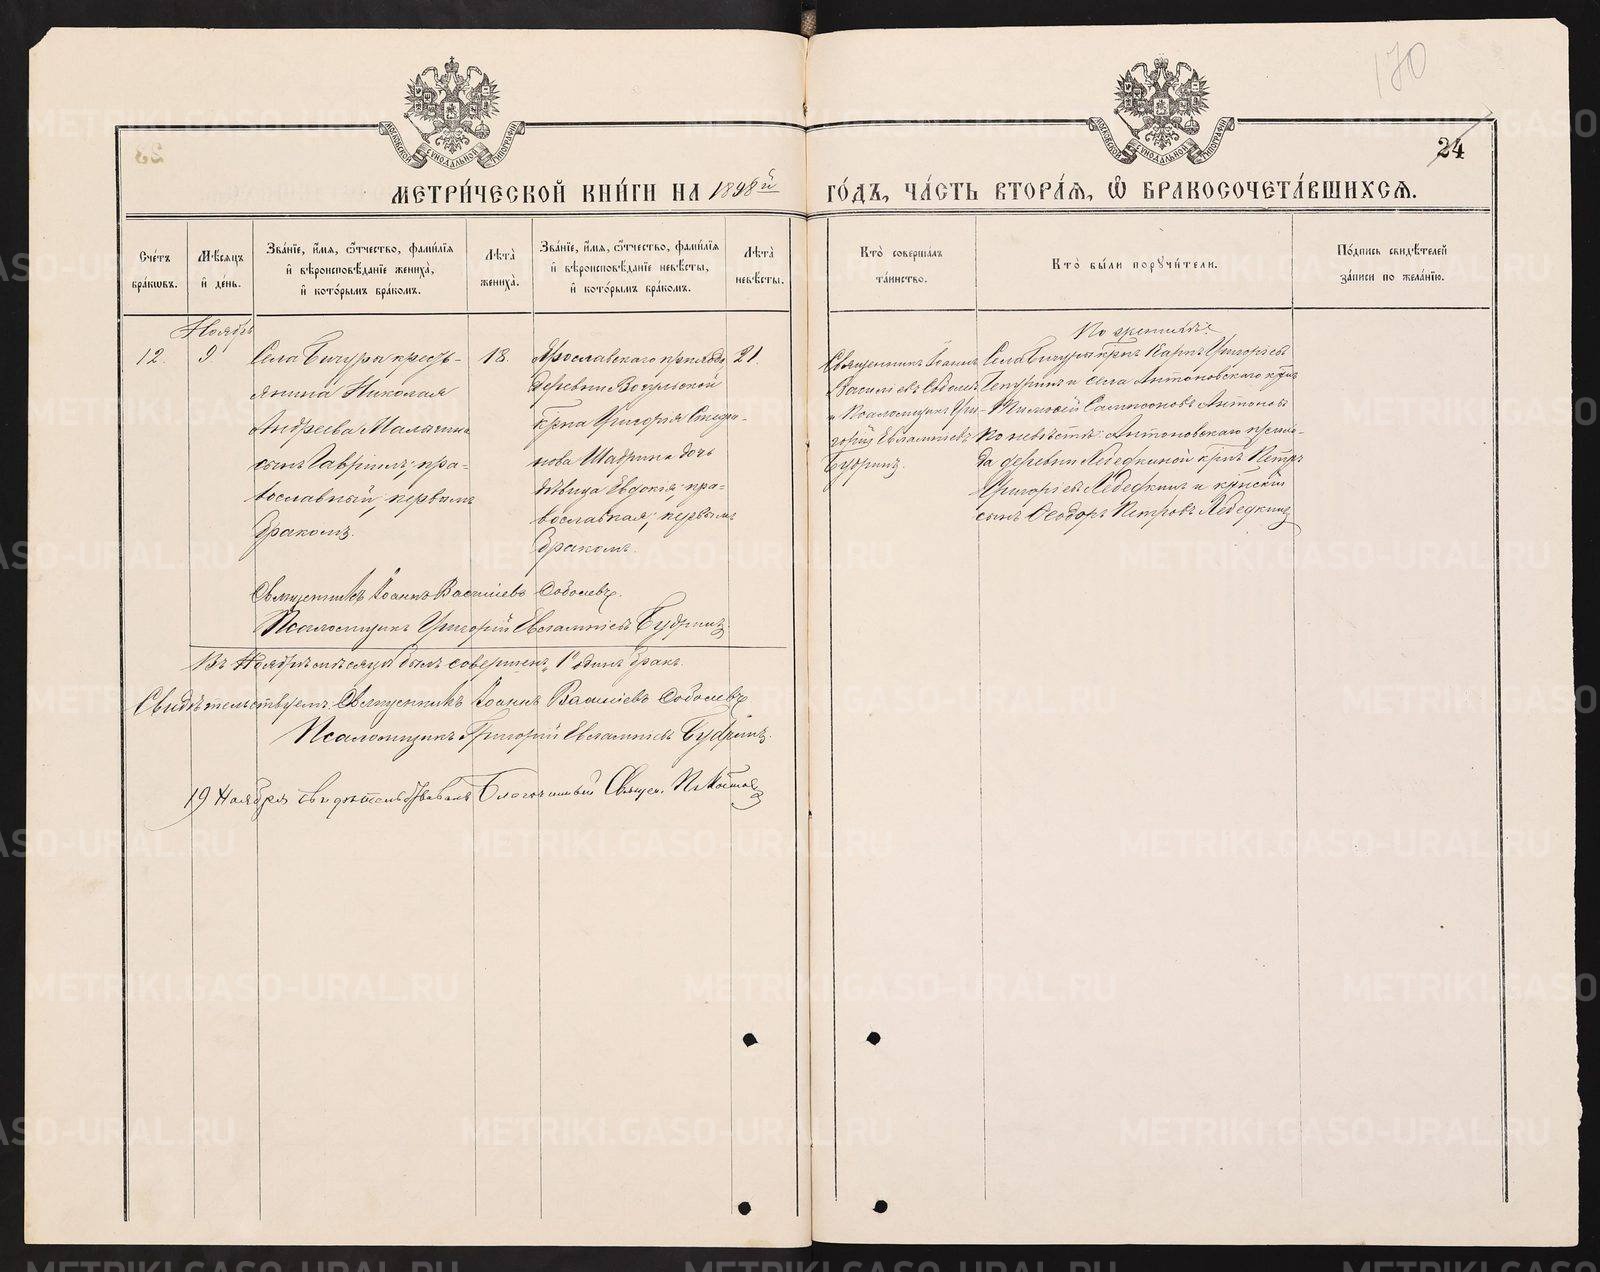 170
24
МЕТРИЧЕСКОЙ КНИГИ НА 1898й ГОДЪ, ЧАСТЬ ВТОРАЯ, Ѡ БРАКОСОЧЕТАВШИХСЯ.
Счетъ браковъ.
Мѣсяцъ и день.
Званіе, имя, ѿчество, фамилія
и вѣроисповѣданіе жениха,
и которымъ бракомъ.
Лѣта жениха.
Званіе, имя, ѿчество, фамилія
и вѣроисповѣданіе невѣсты,
и которымъ бракомъ.
Лѣта невѣсты.
Кто совершалъ таинство.
Кто были поручители.
Подпись свидѣтелей
записи по желанію.
Ноябрь
12.
9
Села Бичура кресть-
янина Николая
Андреева Малыгина
сынъ Гавріилъ; пра-
вославный, первымъ
бракомъ.
18.
Ярославскаго прихода
деревни
Григорія
нова Шадрина дочь
дѣвица Евдокія; пра-
вославная, первымъ
бракомъ.
21.
Священникъ Іоаннъ
Васильевъ Соболевъ
и Псаломщикъ Гри-
горій Евлампіевъ
Будринъ.
По женихѣ:
Села Бичура Карпъ Григорьевъ
и села Антоновскаго
Антоновъ
По невѣстѣ: Антоновскаго прихо-
да деревни Лебедкиной Петръ
Григорьевъ Лебедкинъ и
сынъ Ѳеодоръ Петровъ Лебедкинъ
Священникъ Іоаннъ Васильевъ Соболевъ.
Псаломщикъ Григорій Евлампіевъ Будринъ.
Въ Ноябрѣ мѣсяцѣ былъ совершенъ 1 одинъ бракъ.
Свидѣтельствуемъ: Священникъ Іоаннъ Васильевъ Соболевъ
Псаломщикъ Григорій Евлампіевъ Будринъ.
19 Ноября свидѣтельствовалъ Благочинный Священ.